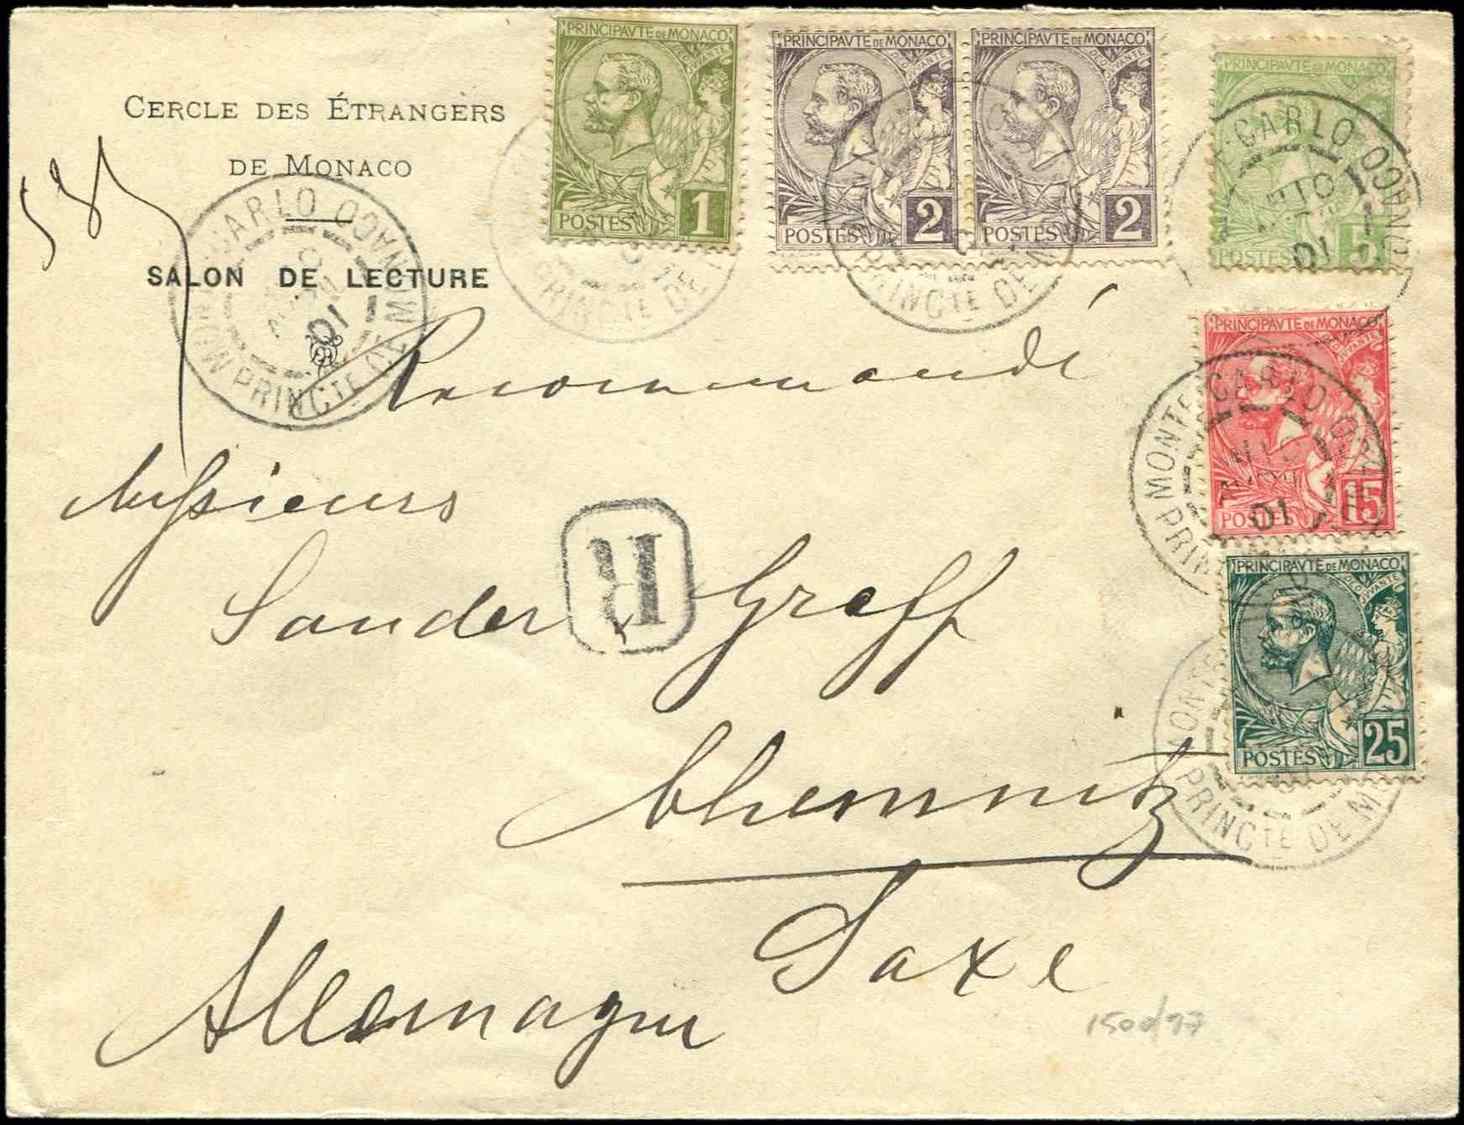 CERCLE DES ÉTRANGERS
DE MONACO
SALON DE LECTURE
585
PRINCIPAVTE DE MONACO
POSTES 1
PRINCIPAVTE DE MONACO
POSTES 2
PRINCIPAVTE DE MONACO
POSTES 2
PRINCIPAVTE DE MONACO
POSTES 5
PRINCIPAVTE DE MONACO
POSTES 15
PRINCIPAVTE DE MONACO
POSTES 25
MONTE-CARLO
01
PRINCTE DE MONACO
Recommandé
Messieurs
Sander & Graff
R
Chemnitz
Saxe
Allemagne